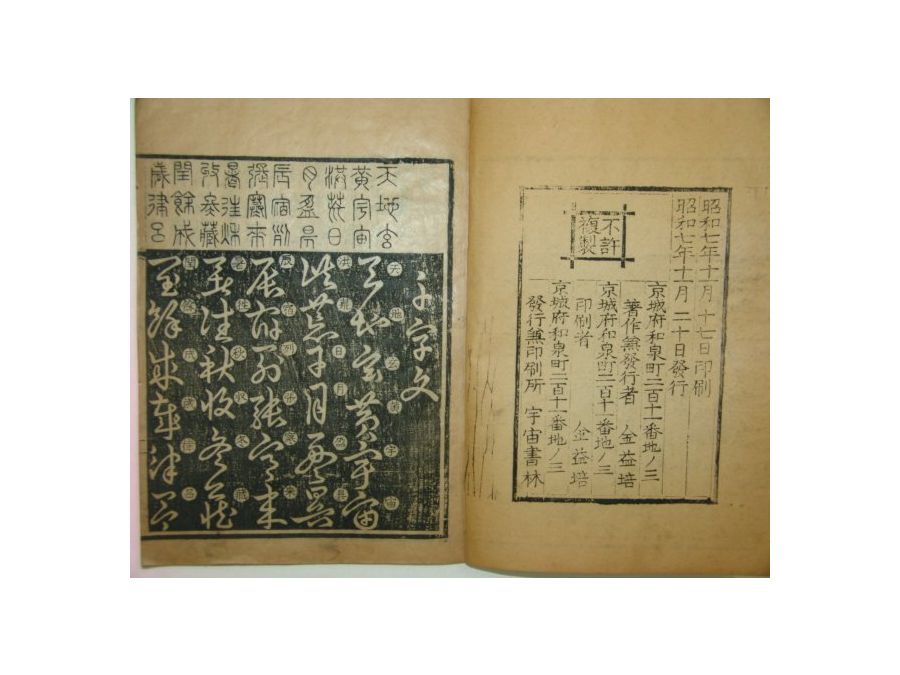 昭和七年十一月 十七日印刷
昭和七年十一月 二十日發行
京城府和泉町二百十一番地ノ三
著作兼發行者 金益培
京城府和泉町二百十一番地ノ三
印刷者 金益培
京城府和泉町二百十一番地ノ三
發行兼印刷所 宇宙書林
不許
複製
天地玄
黃宇宙
洪荒日
月盈昃
辰宿列
張寒來
暑往秋
收冬藏
閏餘成
歲律呂
千字文
天地玄黃宇宙
天地玄黃宇宙
洪荒日月盈昃
洪荒日月盈昃
辰宿列張寒來
辰宿列張寒來
暑往秋收冬藏
暑往秋收冬藏
閏餘成歲律呂
閏餘成歲律呂